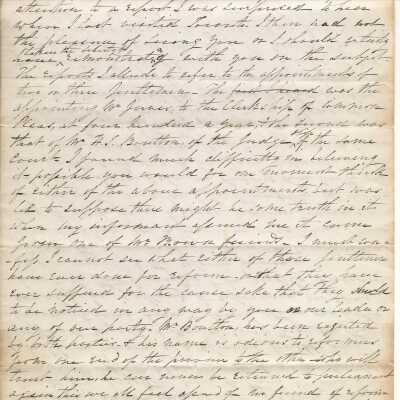 attention to a report I was surprised to hear
when I last visited Toronto I then had not
the pleasure of seeing you or I should certainly
have remonstrated with you on the subject
The reports I allude to refer to the appointments of
two or three Gentlemen. The was the
appointing Mr Jarvis, to the Clerkship of Common
Pleas, at four hundred a year, & the second was
that of Mr H.J. Boulton of the Judge of the same
Court I found much difficulty in believing
it possible you would for one moment think
of either of the above appointments but was
led to suppose there might be some truth in it
when my informant it came
from one of Mr friends. I must con-
-fess I cannot see what either of those Gentlemen
have ever done for reform or that they have
ever suffered for the cause sake that they should
to be noticed in any way by you or our Leader or
any of our party. Mr Boulton has been rejected
by both parties & his name is odious to reformers
from one end of the province to the other who will
trust him he can never be returned to parliament
again this we all feel of friend of reform